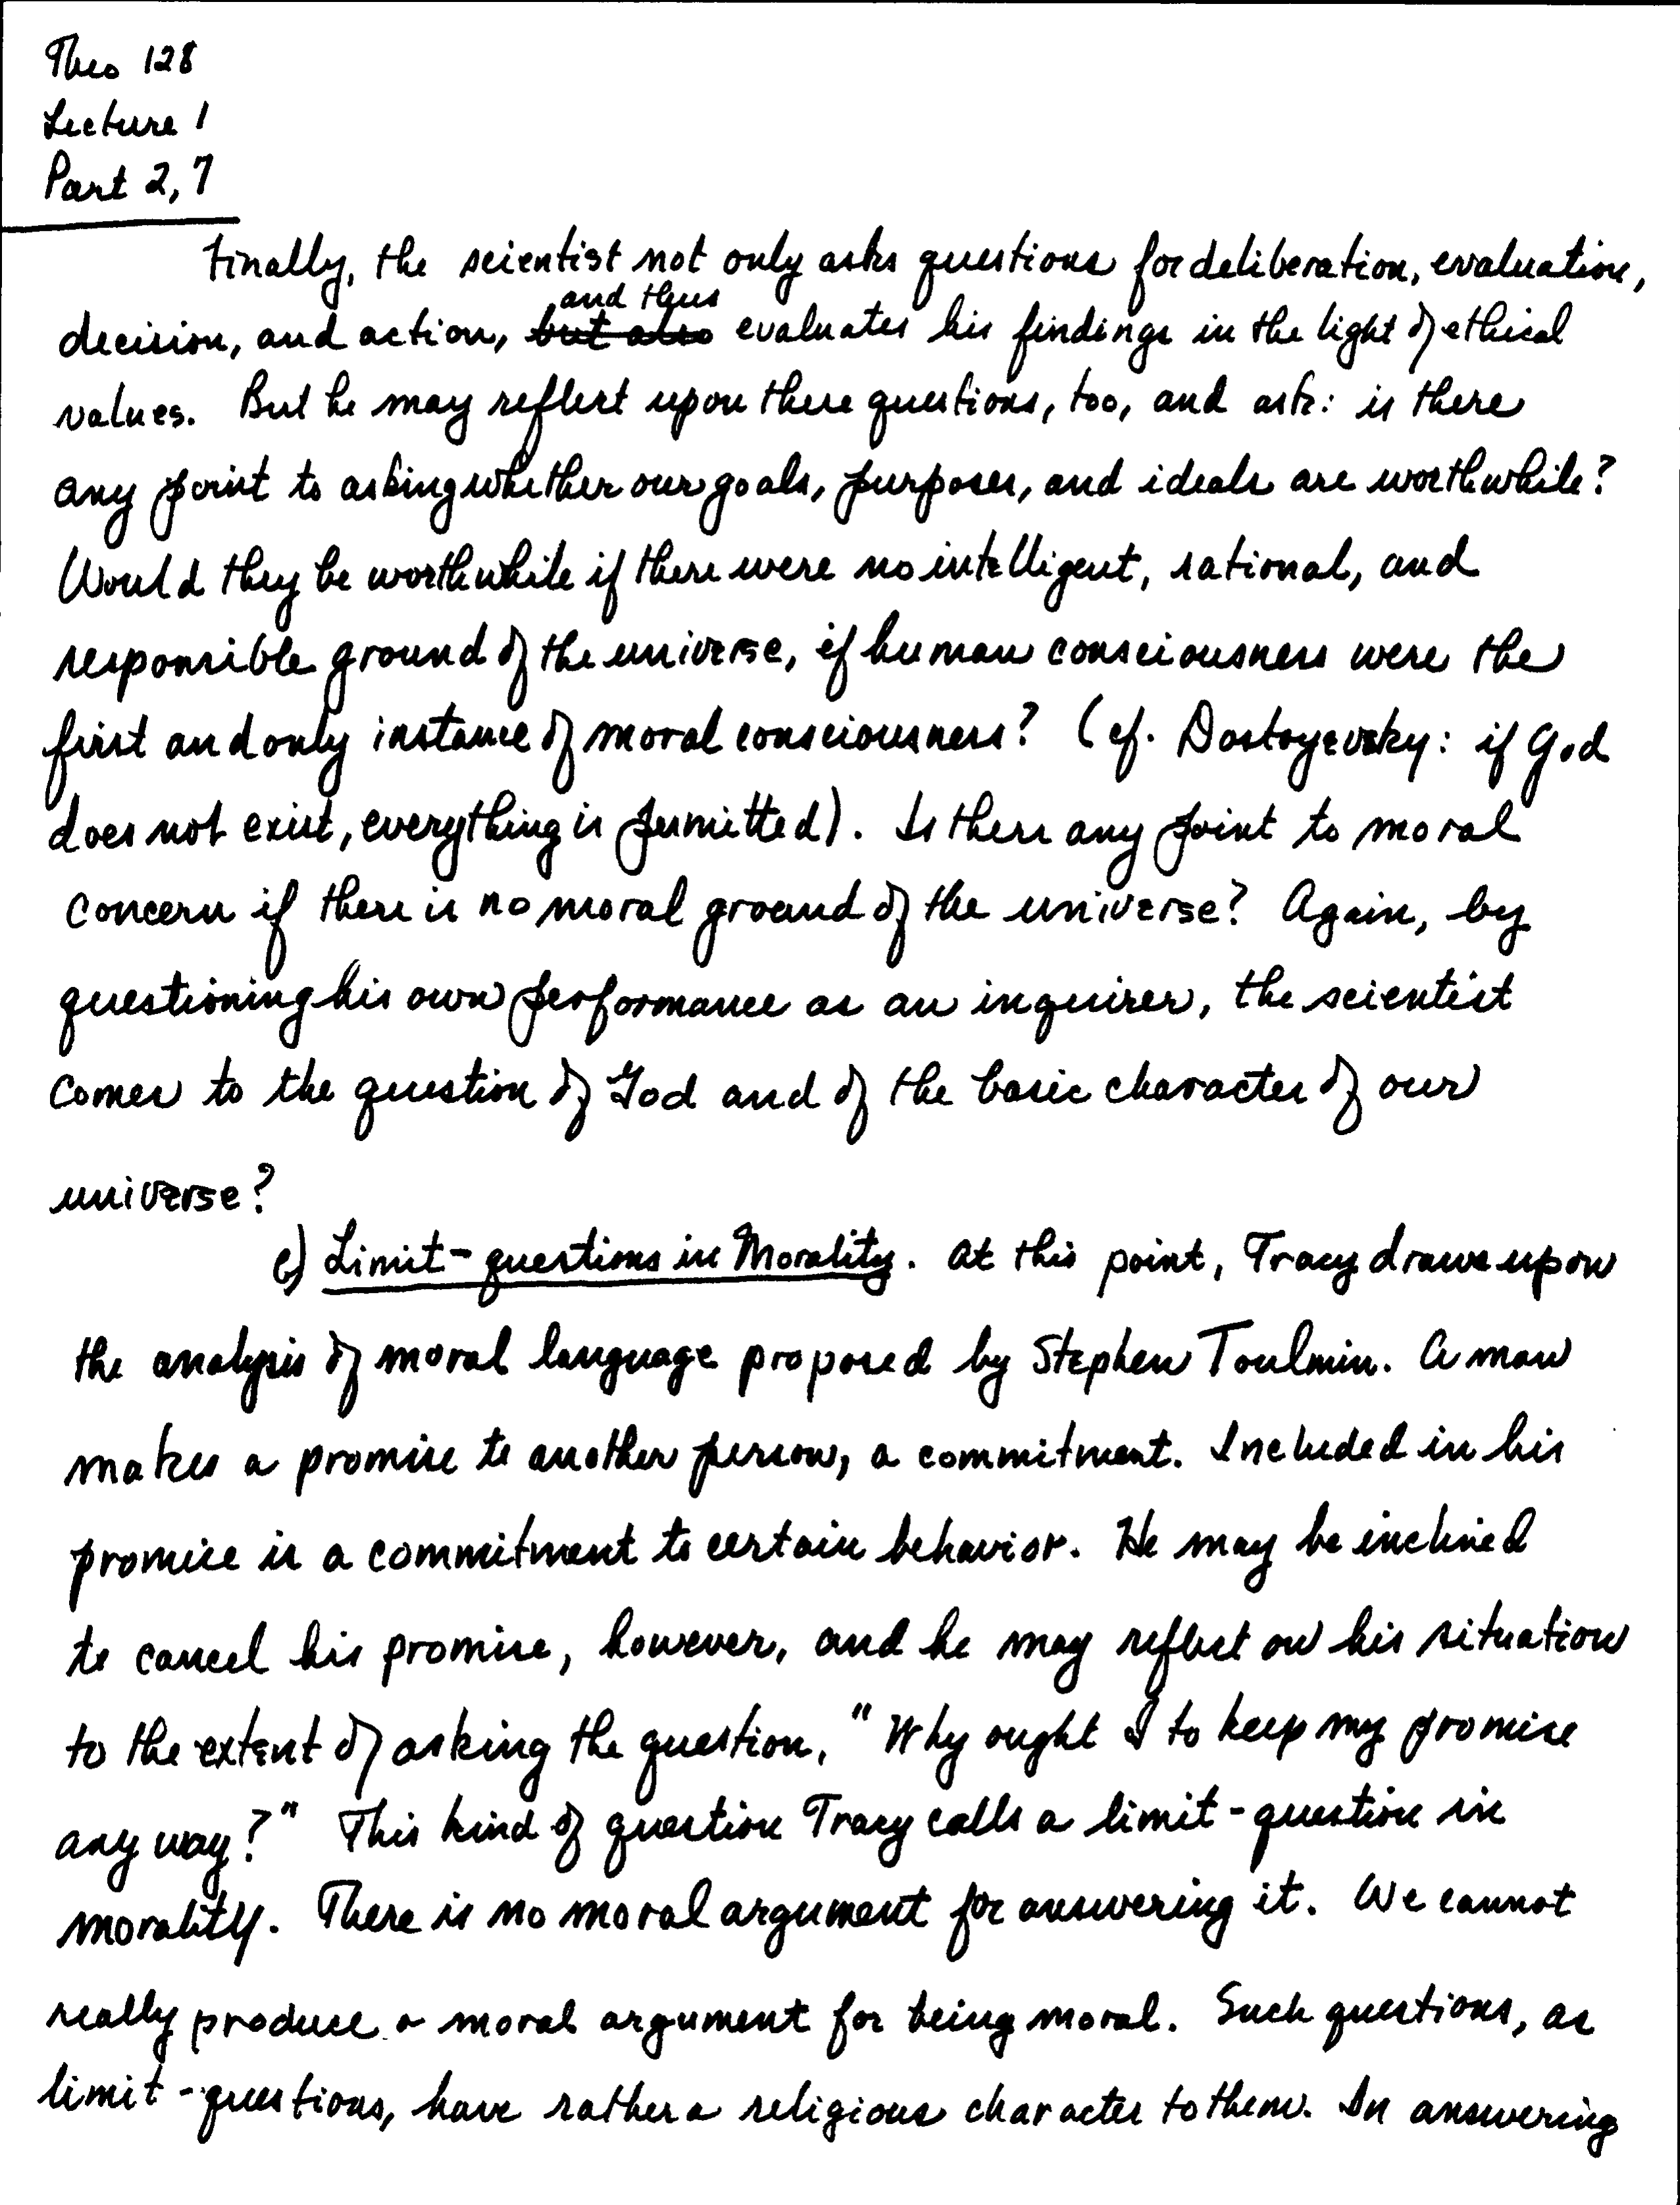 Theo 128
Lecture 1
Part 2, 7
Finally, the scientist not only asks questions for deliberation, evaluation,
and thus
decision, and action, but also evaluates his findings in the light of ethical
values. But he may reflect upon these questions, too, and ask: is there
any point to asking whether our goals, purposes, and ideals are worthwhile?
Would they be worthwhile if there were no intelligent, rational, and
responsible ground of the universe, if human consciousness were the
first and only instance of moral consciousness? (cf. Dostoyevsky: if God
does not exist, everything is permitted). Is there any point to moral
concern if there is no moral ground of the universe? Again, by
questioning his own performance as an inquirer, the scientist
comes to the question of God and of the basic character of our
universe?
c) Limit-questions in Morality. At this point, Tracy draws upon
the analysis of moral language proposed by Stephen Toulmin. A man
makes a promise to another person, a commitment. Included in his
promise is a commitment to certain behavior. He may be inclined
to cancel his promise, however, and he may reflect on his situation
to the extent of asking the question, "Why ought I to keep my promise
any way?" This kind of question Tracy calls a limit-question in
morality. There is no moral argument for answering it. We cannot
really produce a moral argument for being moral. Such questions, as
limit-questions, have rather a religious character to them. In answering